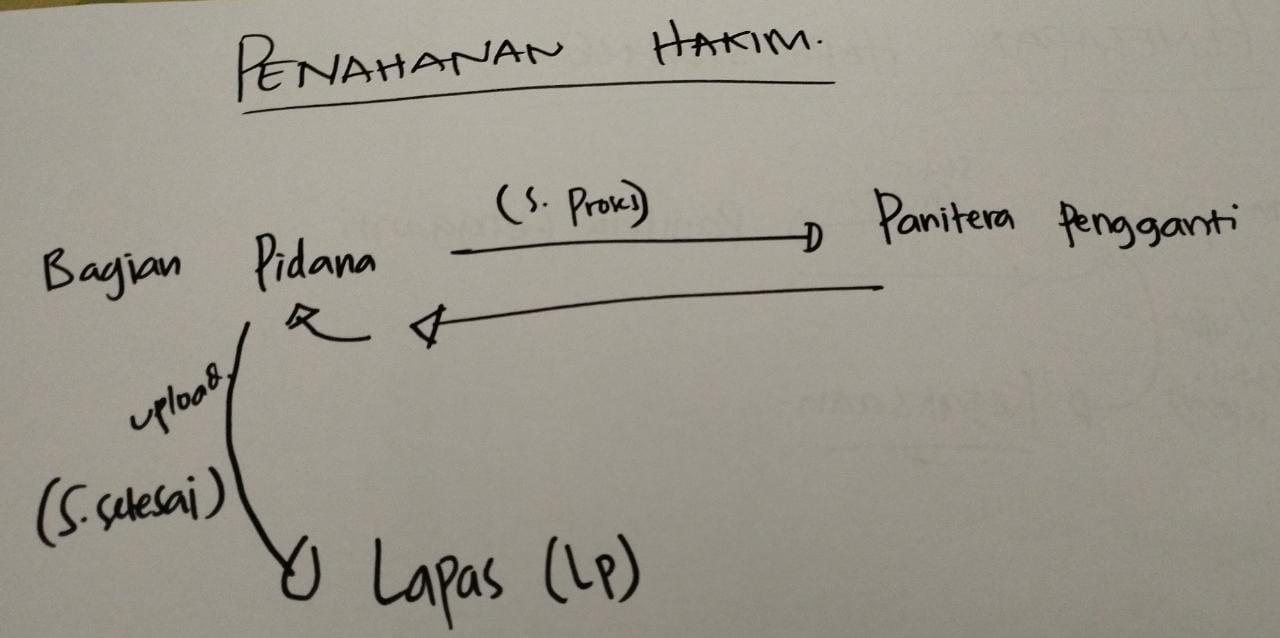 PENAHANAN HAKIM.
(S. Proses)
Bagian Pidana
Panitera Pengganti
upload
(S. selesai)
Lapas (LP)